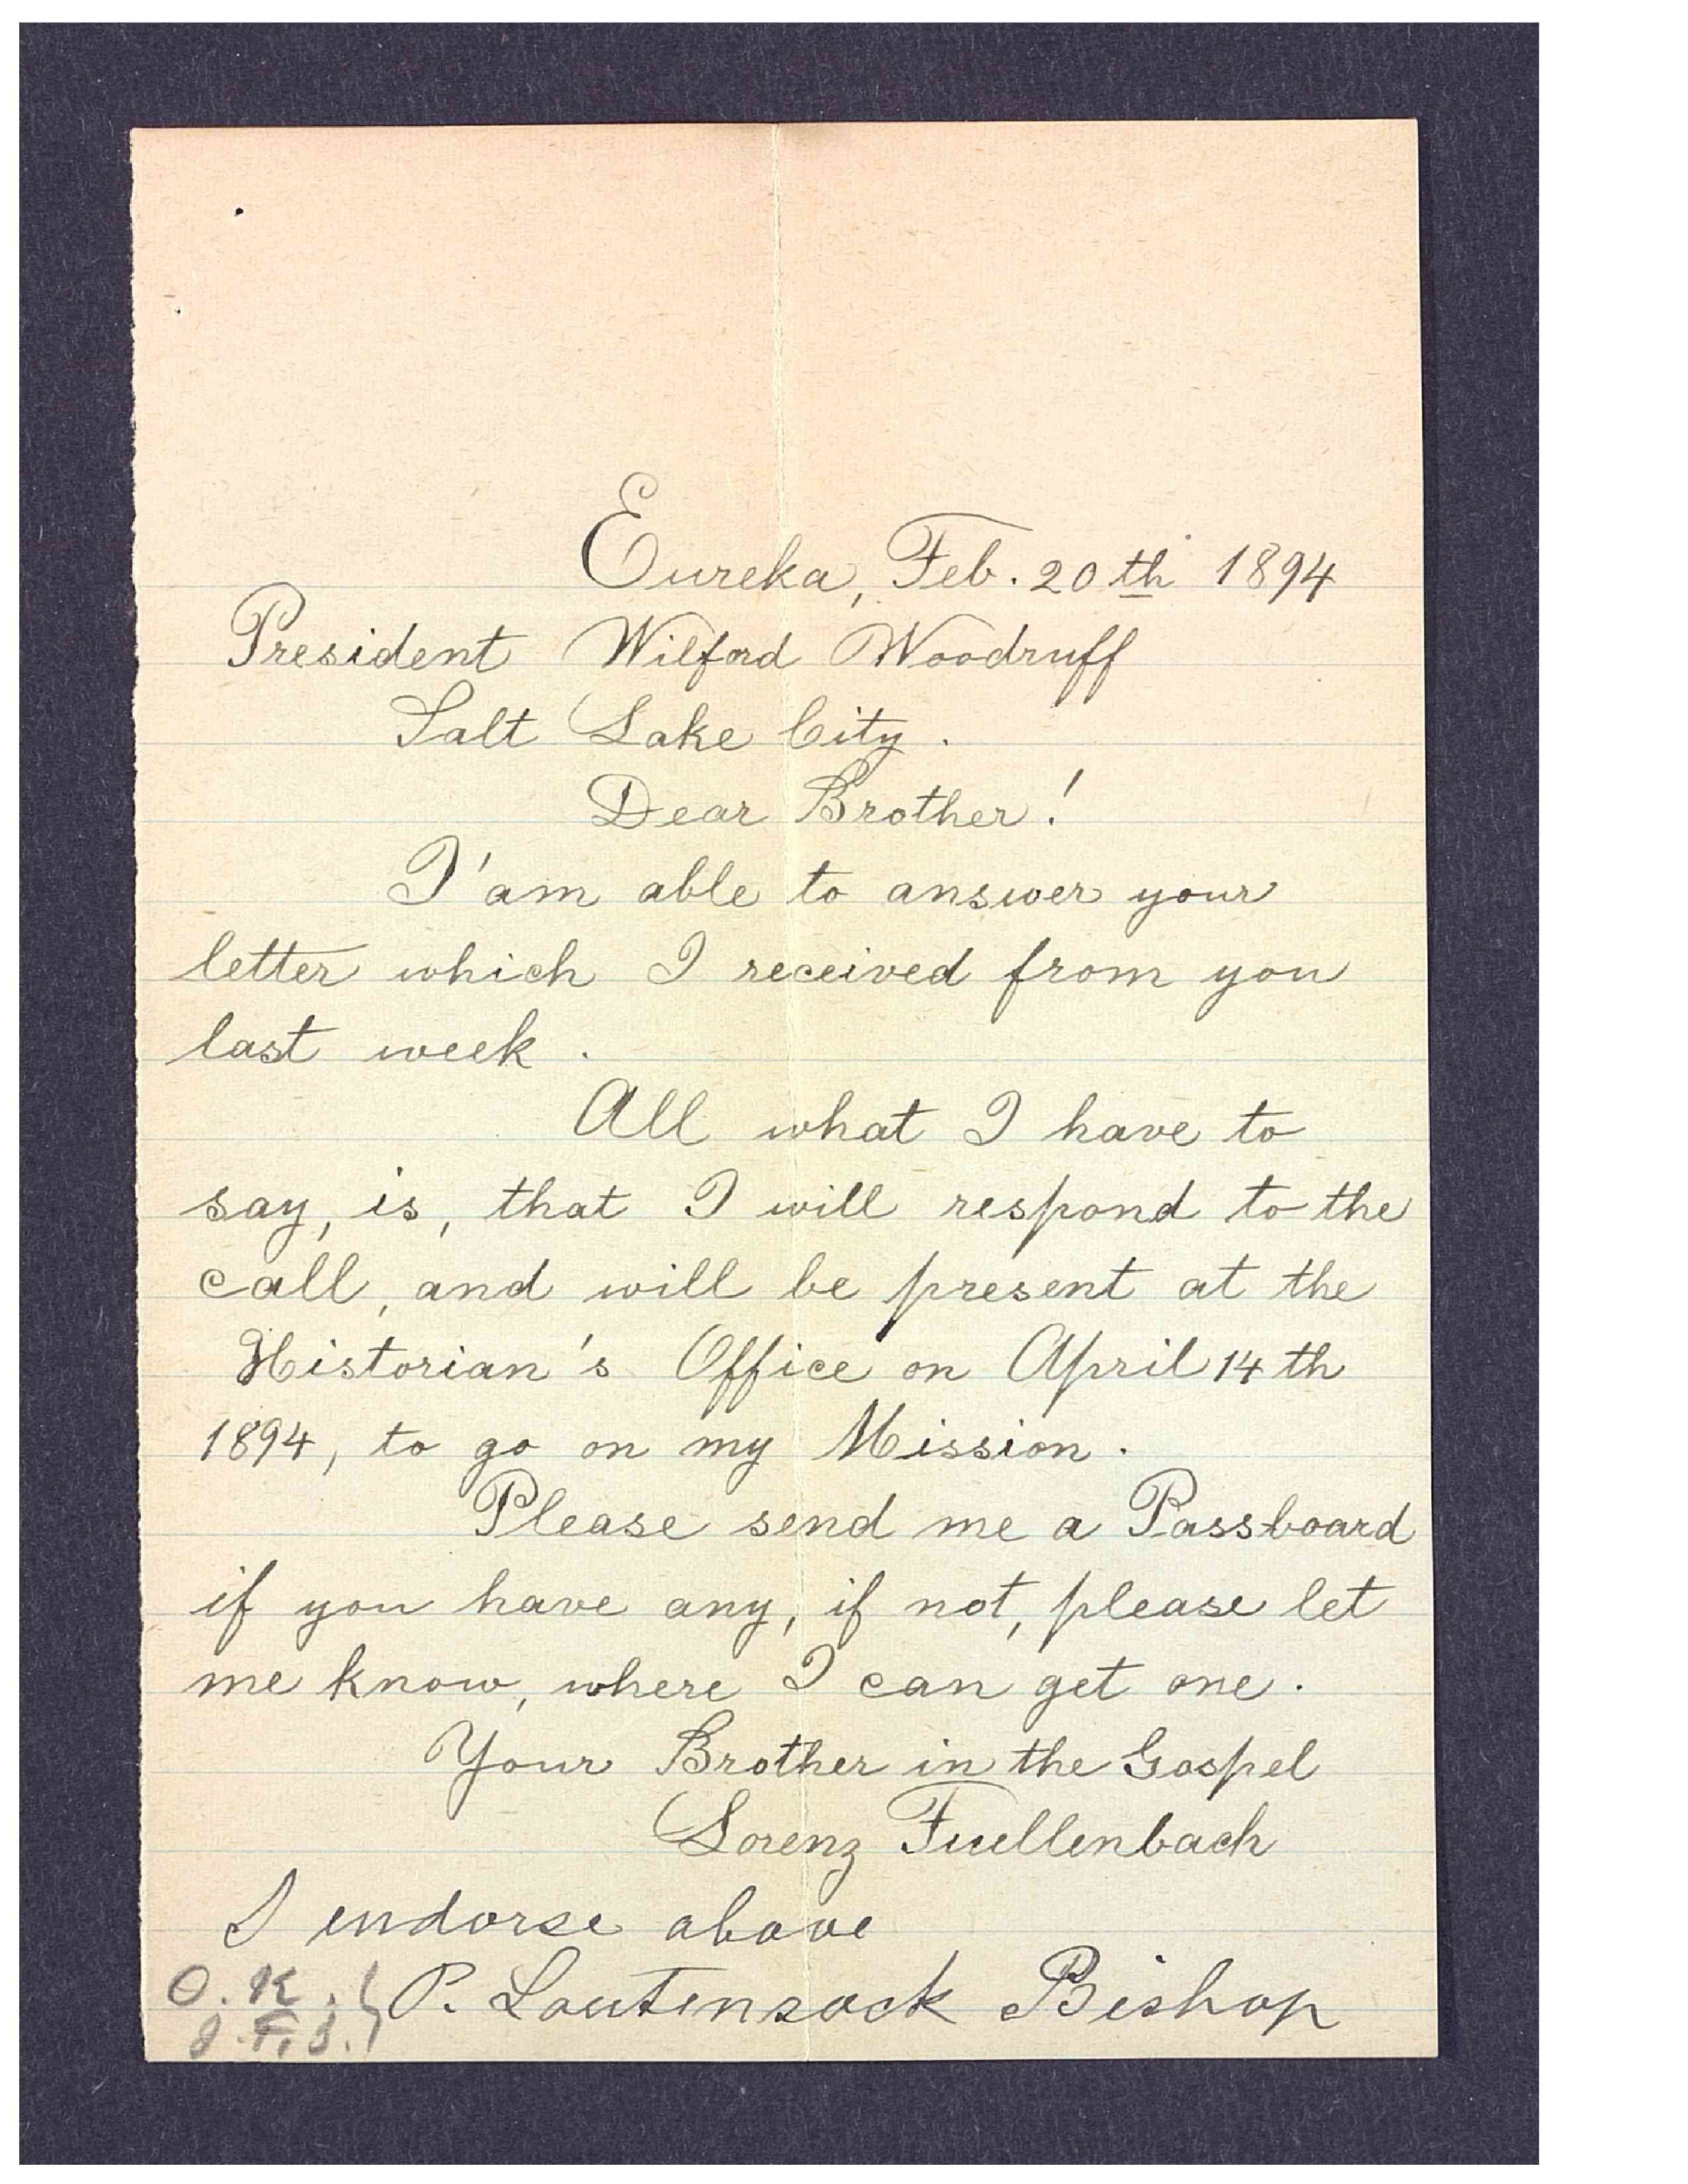 Eureka, Feb. 20th 1894
President Wilford Woodruff
Salt Lake City.
Dear Brother!
I'am able to answer your
letter which I received from you
last week.
All what I have to
say, is, that I will respond to the
call, and will be present at the
Historian's Office on April 14th
1894, to go on my Mission.
Please send me a Passboard
if you have any, if not, please let
me know, where I can get one.
Your Brother in the Gospel
Lorenz Fuellenbach
I endorse above
P. Loutensock Bishop
O.K.
J.F.S.